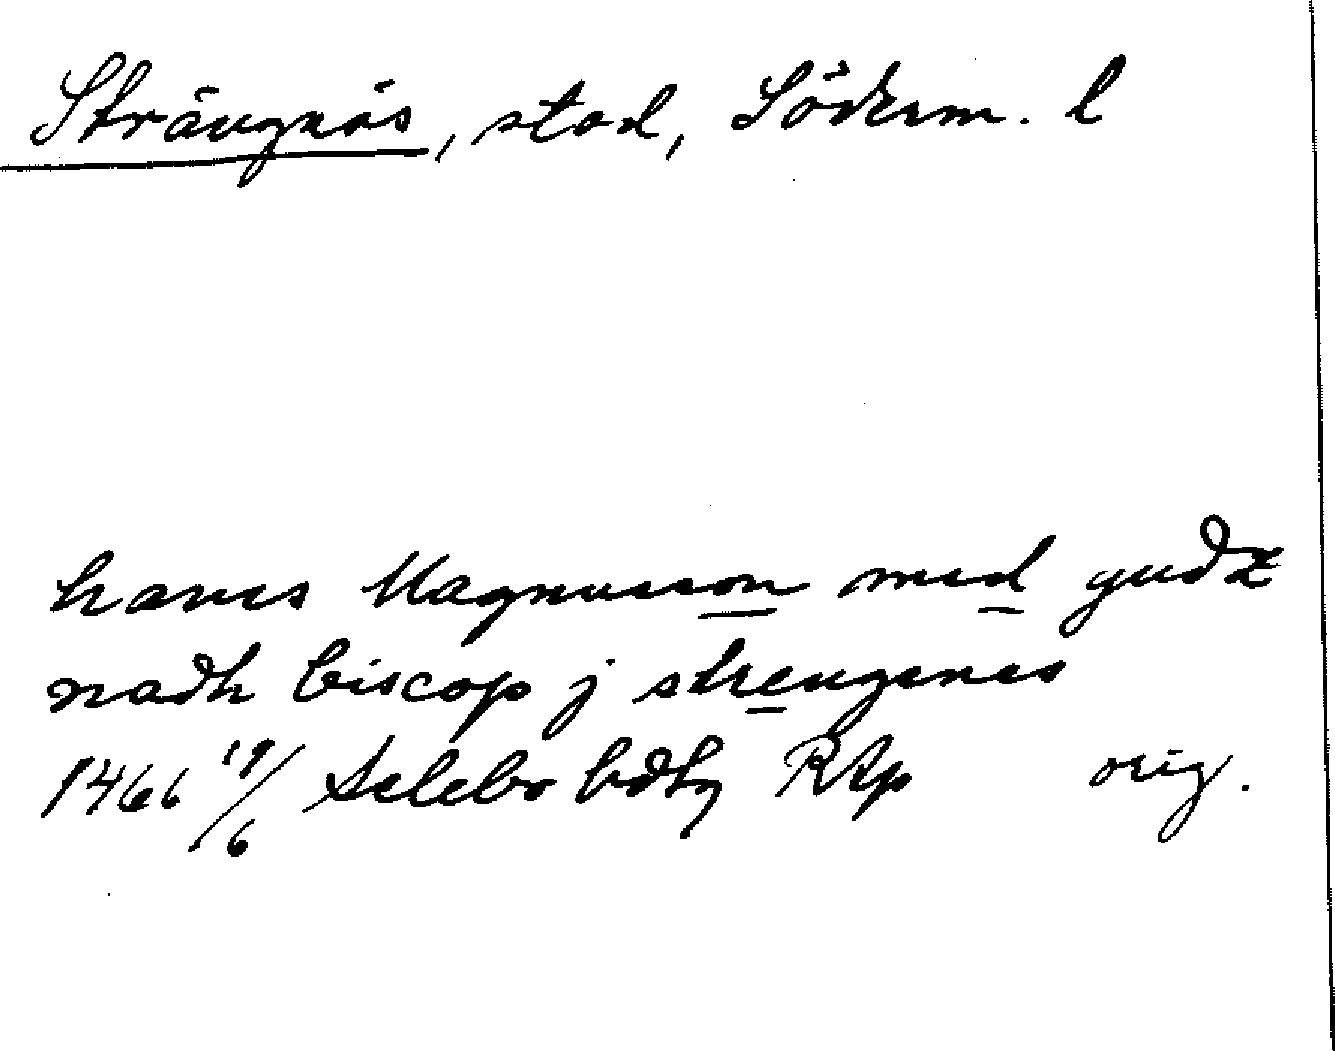 Strängnäs, stad, Söderm. l
hanes Magnusson med gudz
nadh biscop j strengenes
1466 19/6 Selebo hdhg RAp orig.